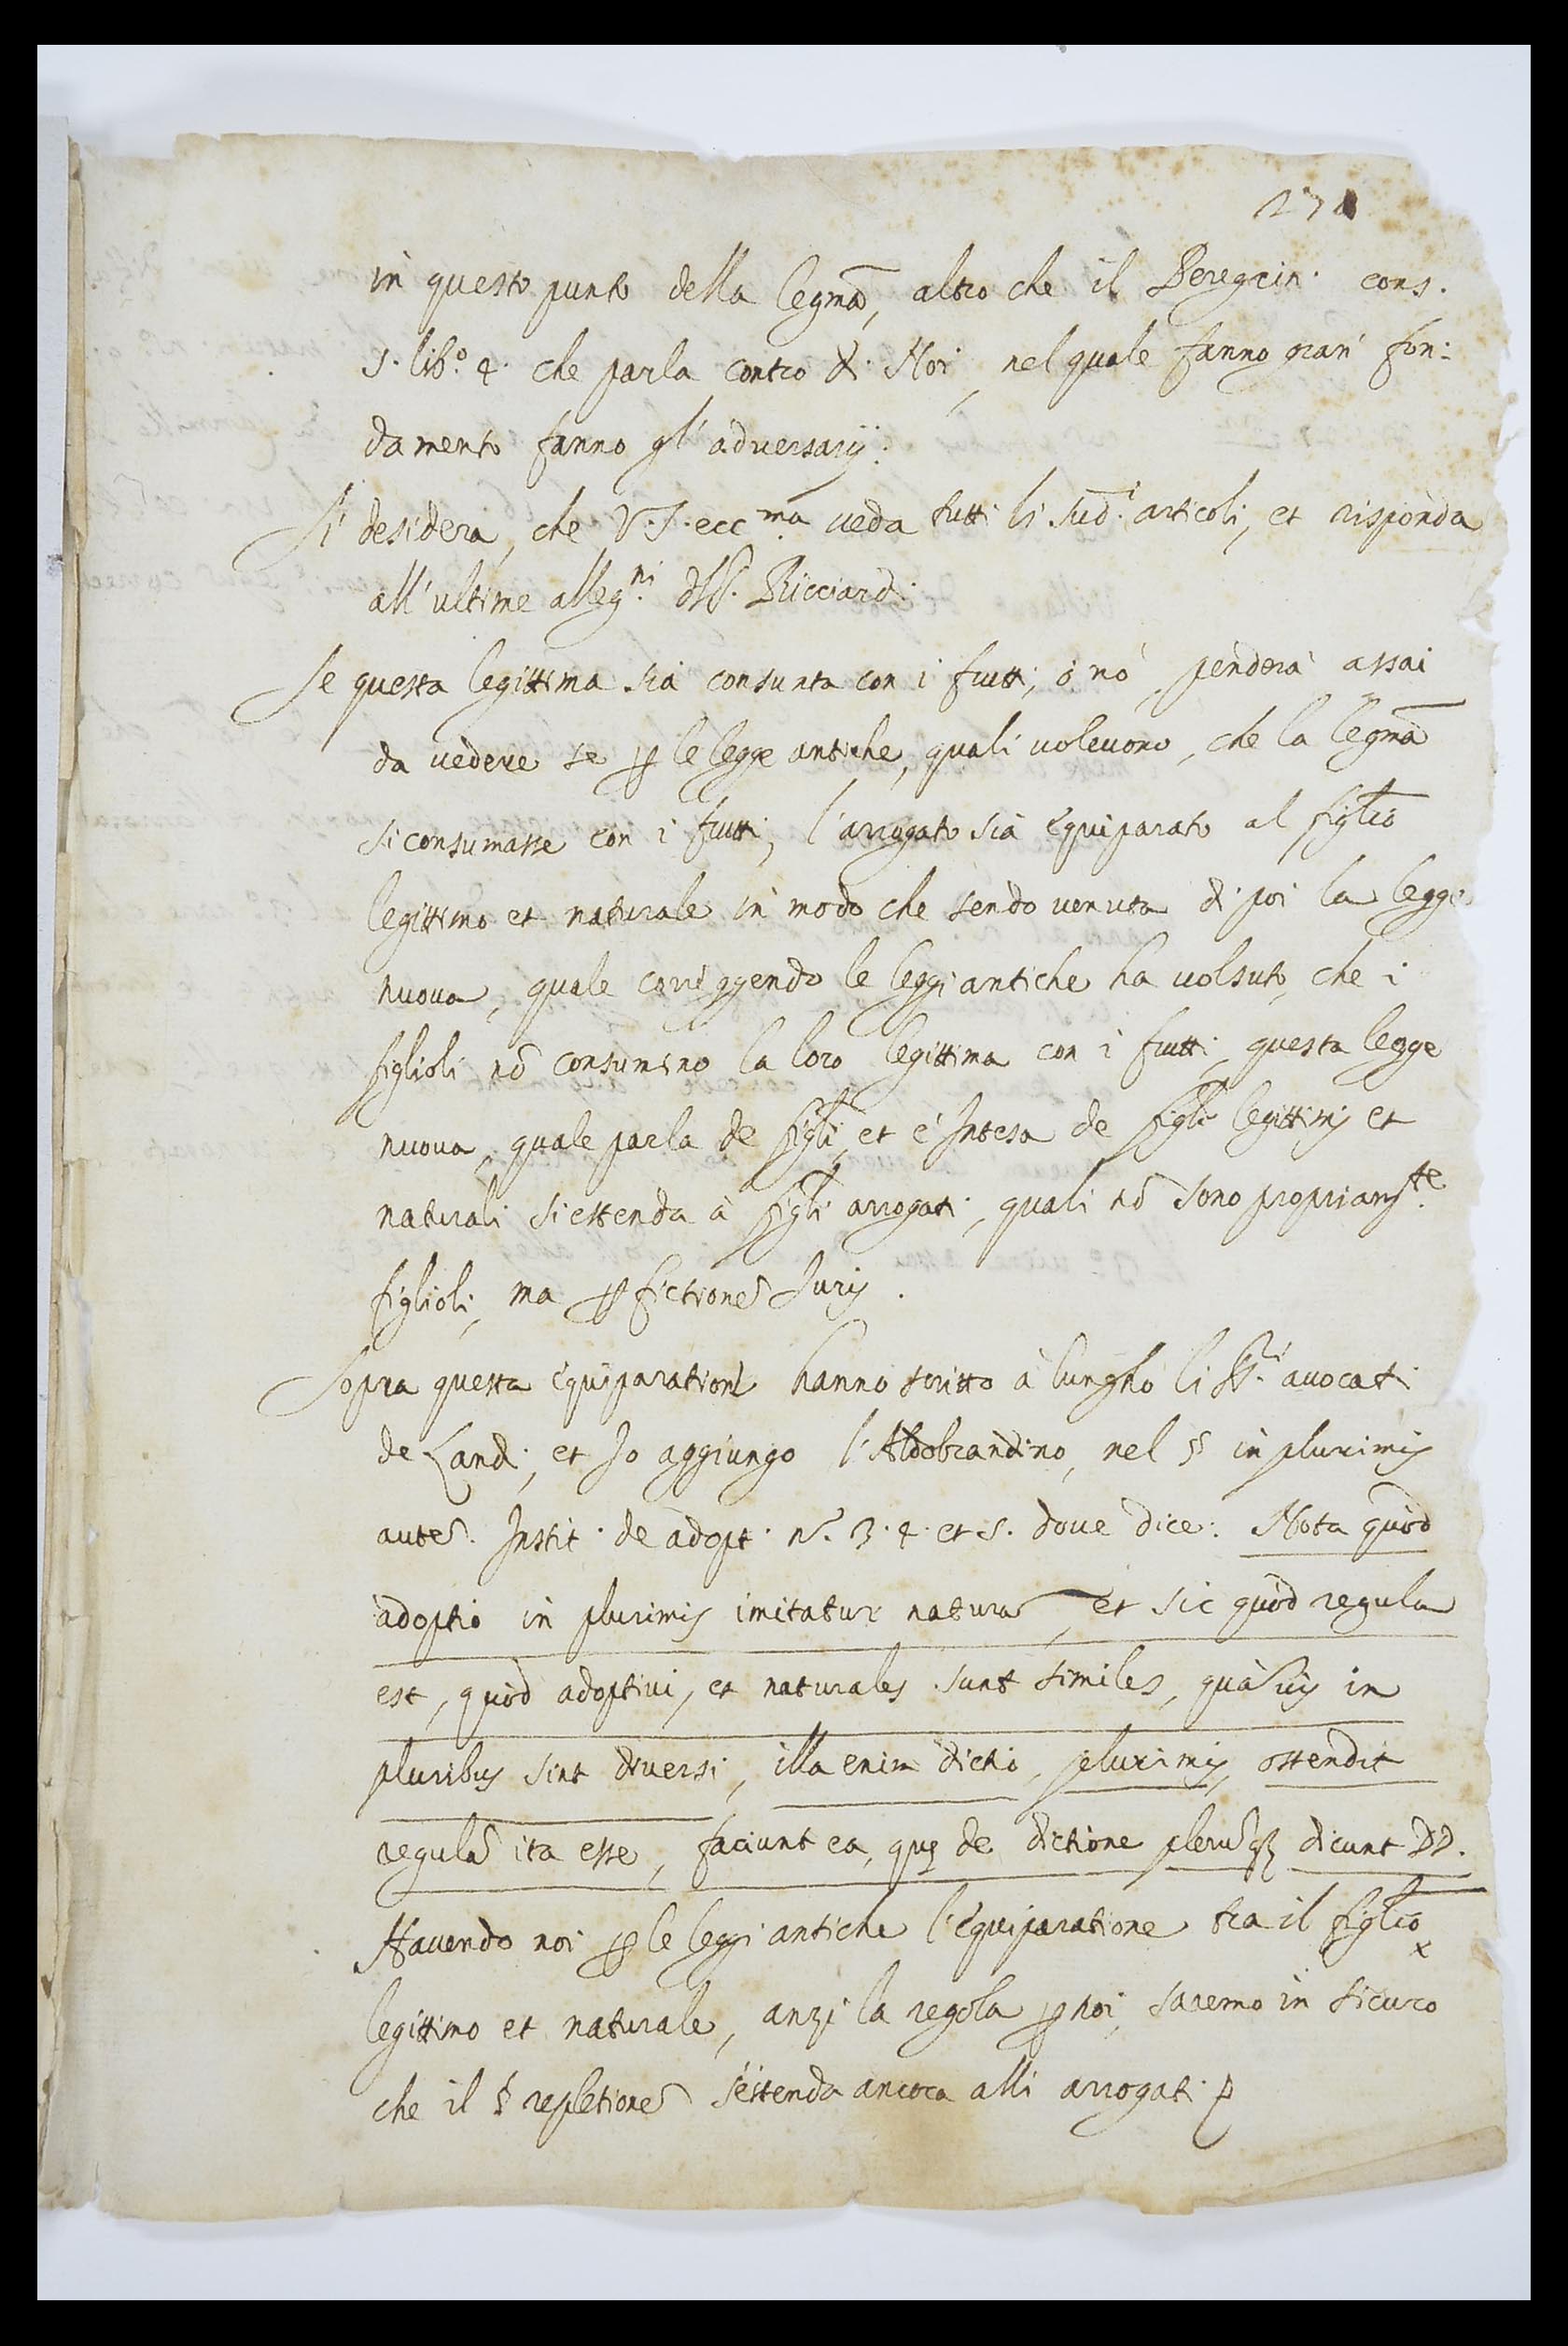 271
in questo punto della legma, altro che il Peregrin. cons.
5. lib.º 4. che parla contro di Noi, nel quale fanno gran' fon:
damento fanno gl'adversarij.
Si desidera, che V. S. ecc.ma veda tutti li sud.i articoli, et risponda
all'ultime alleg.ni dll. Ricciardi
Se questa legittima sia consunta con i frutti, ò nò, penderà assai
da vedere se p le legge antiche, quali volevono, che la legma
si consumasse con i frutti, l'arrogato sia equiparato al figlio
legittimo et naturale in modo che sendo venuta di poi la legge
nuova, quale corregendo le leggi antiche ha volsuto, che i
figlioli nō consumino la loro legittima con i frutti, questa legge
nuova, quale parla de figli, et è Intesa de figli legittimj et
naturali si estenda à figli arrogati, quali nō sono propriam.te
figlioli, ma p fictionē Iuris.
Sopra questa equiparationē hanno scritto à lungho li SS.ri avocati
de Landi, et Io aggiungo l'Aldobrandino, nel § in plurimis
autē. Instit. de adopt. n.º 3. 4. et 5. dove dice: Nota quòd
adoptio in plurimis imitatur naturā, et sic quòd regula
est, quòd adoptivi, et naturales sunt similes, quāvis in
pluribus sint diversi, illa enim dictio, plurimis, ostendit
regulā ita esse, faciunt ea, quę de dictione plerūq dicunt DD.
Havendo noi p le leggi antiche l'equiparatione tra il figlio x
legittimo et naturale, anzi la regola p noi, saremo in sicuro
che il § repletionē s'estenda ancora alli arrogati p